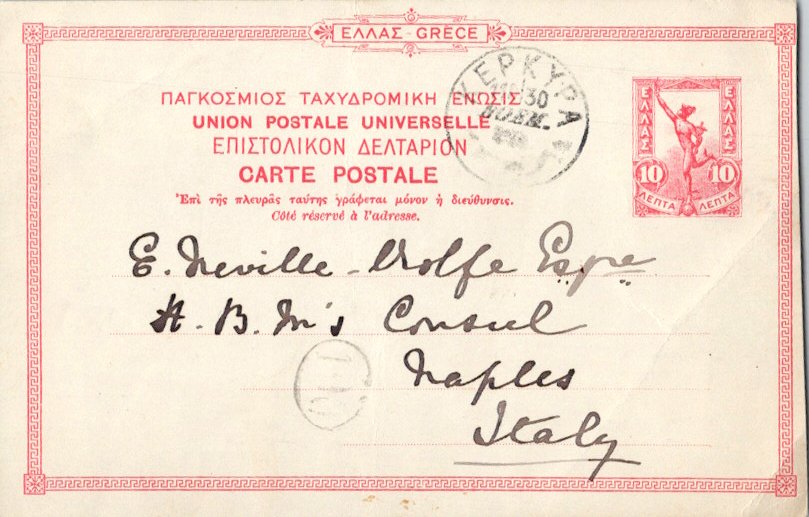 ΕΛΛΑΣ-GRÈCE
ΠΑΓΚΟΣΜΙΟΣ ΤΑΧΥΔΡΟΜΙΚΗ ΕΝΩΣΙΣ
UNION POSTALE UNIVERSELLE
ΕΠΙΣΤΟΛΙΚΟΝ ΔΕΛΤΑΡΙΟΝ
CARTE POSTALE
Ἐπὶ τῆς πλευρᾶς ταύτης γράφεται μόνον ἡ διεύθυνσις.
Côté réservé à l'adresse.
ΚΕΡΚΥΡΑ
30
ΕΛΛΑΣ ΕΛΛΑΣ
10 10
ΛΕΠΤΑ ΛΕΠΤΑ
E. Neville-Rolfe Esqre
H. B. M's Consul
Naples
Italy